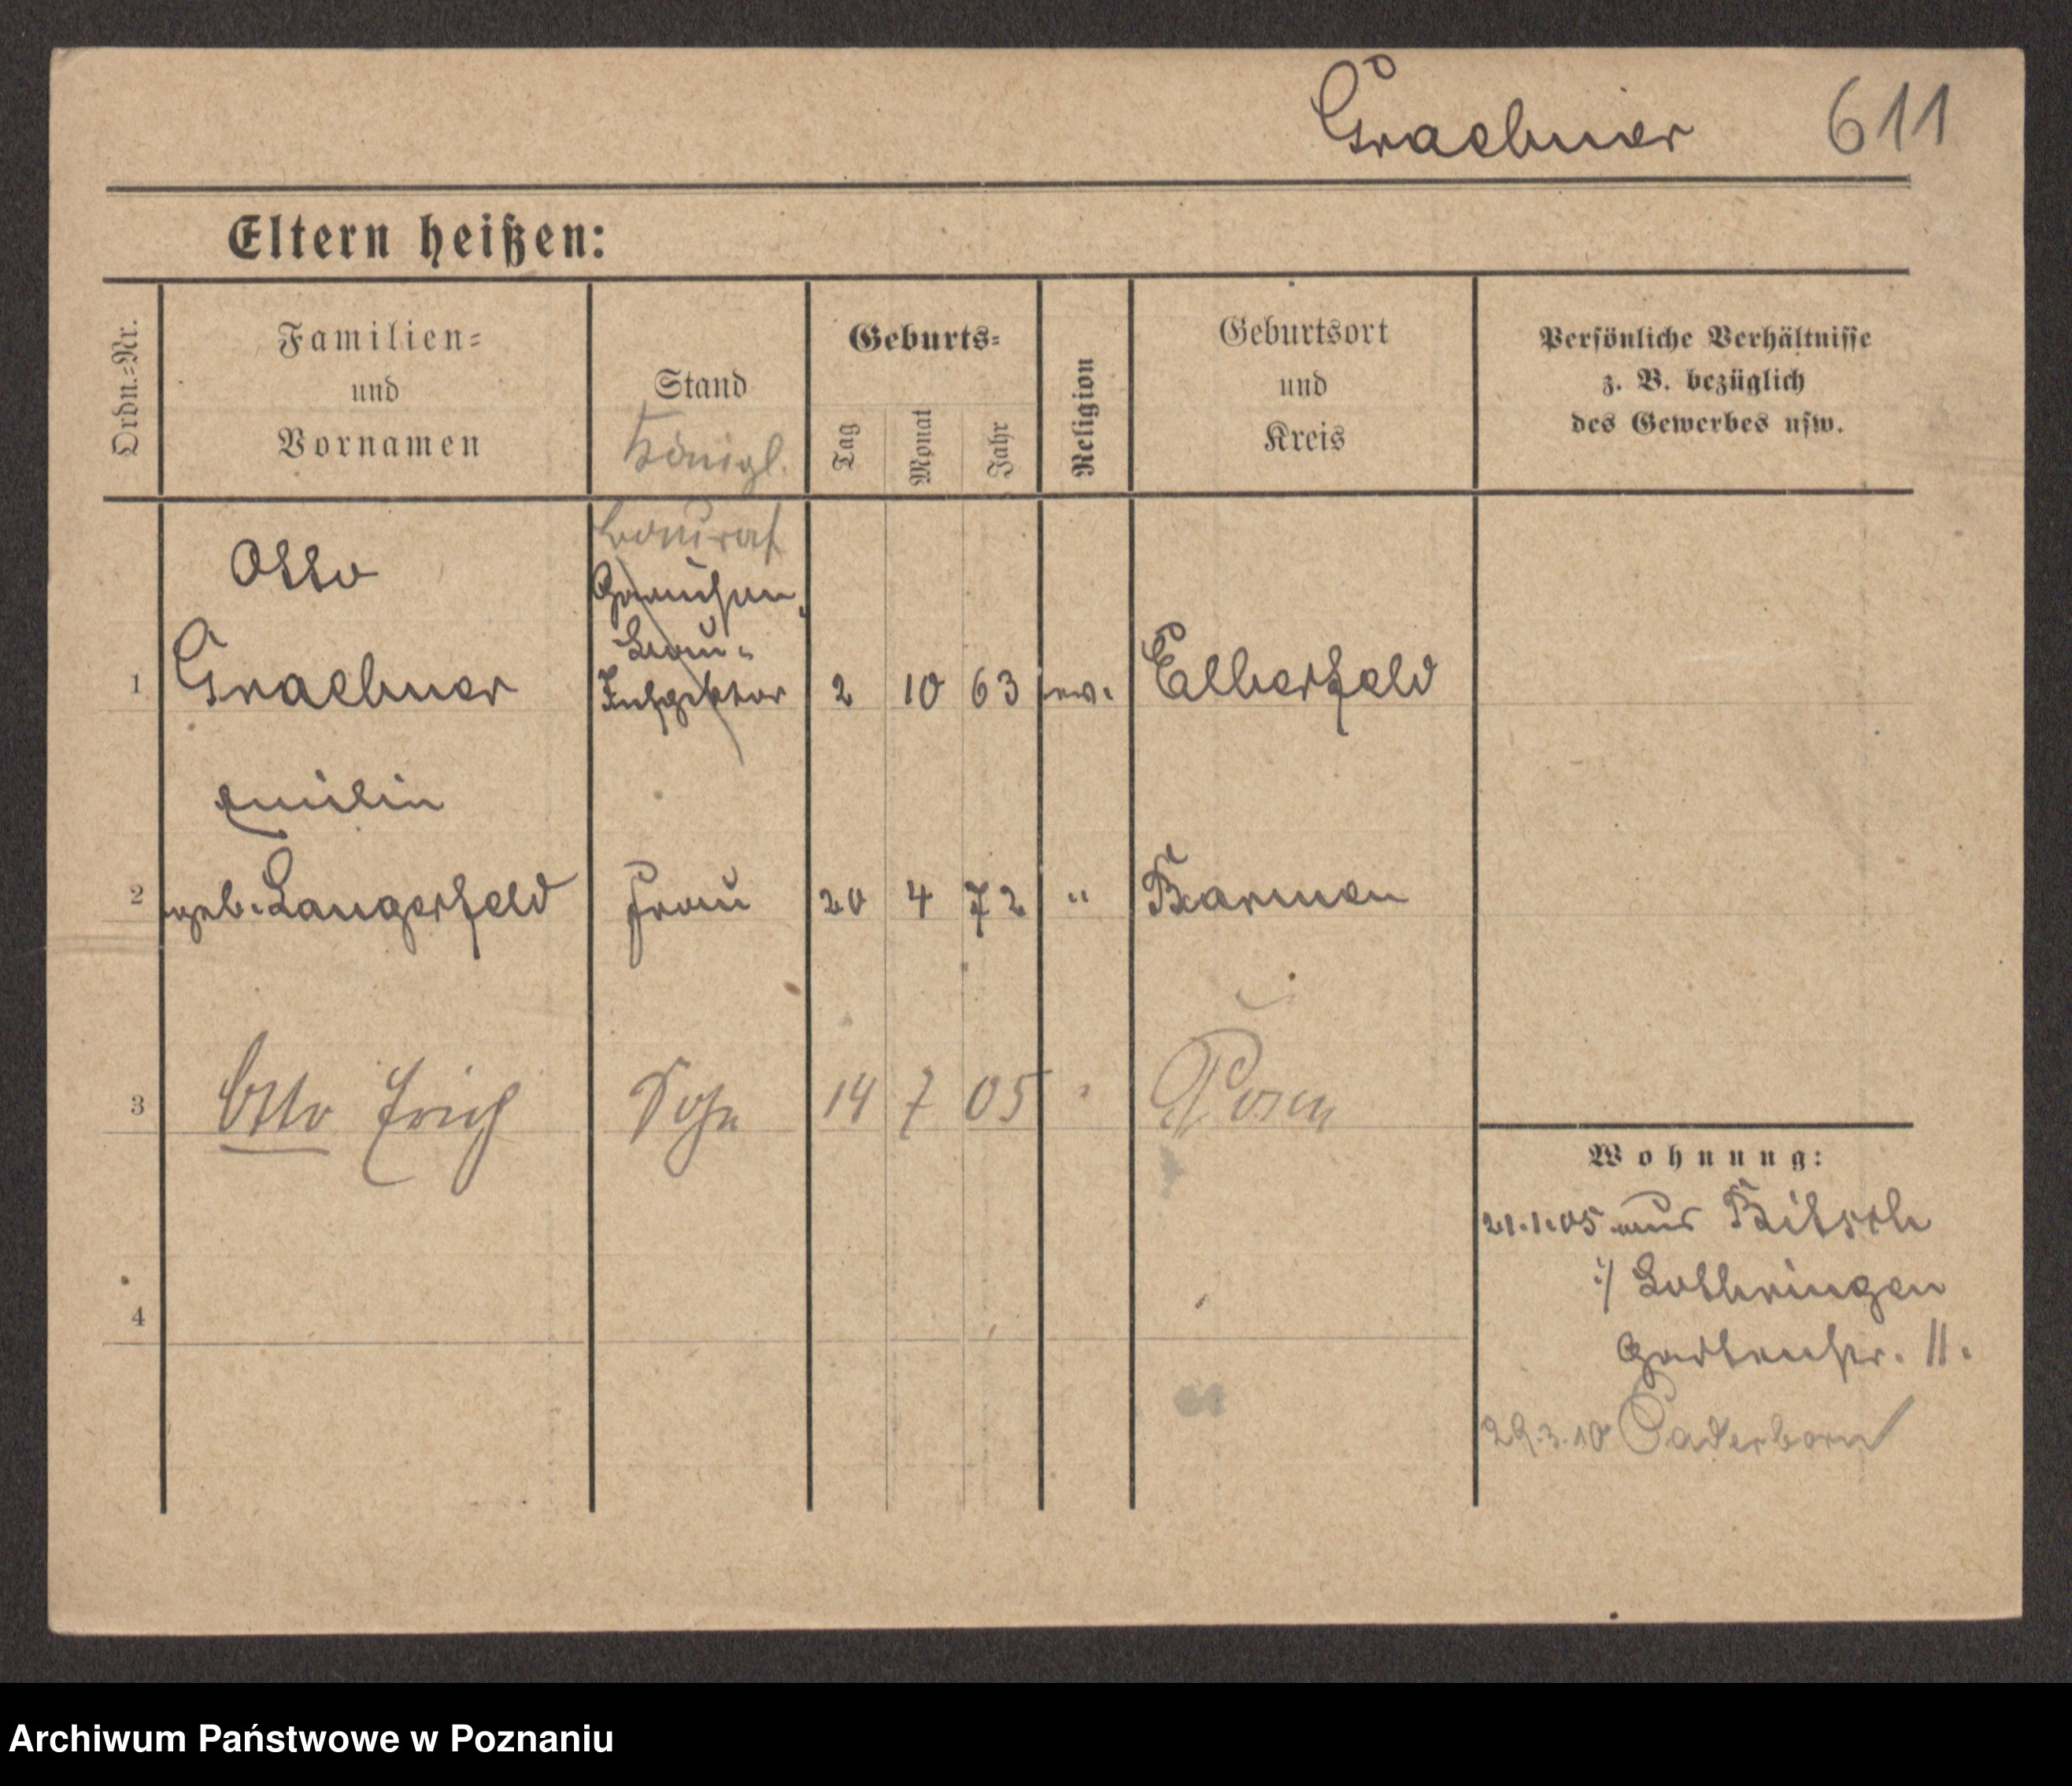 Graebner 611
Eltern heißen:
Ordn.=Nr.
Familien=
und
Vornamen
Stand
Königl.
Geburts=
Tag
Monat
Jahr
Religion
Geburtsort
und
Kreis
Persönliche Verhältnisse
z. B. bezüglich
des Gewerbes usw.
Baurat
Otto
Garnison
Bau-
1 Graebner Inspektor 2 10 63 ev. Elberfeld
Emilie
2 geb. Langerfeld Frau 20 4 72 " Barmen
3 Otto Erich Sohn 14 7 05 " Posen
Wohnung:
21.1.05 aus Bitsch
i/ Lothringen
4
Gartenstr. 11.
29.3.10 Paderborn
Archiwum Państwowe w Poznaniu